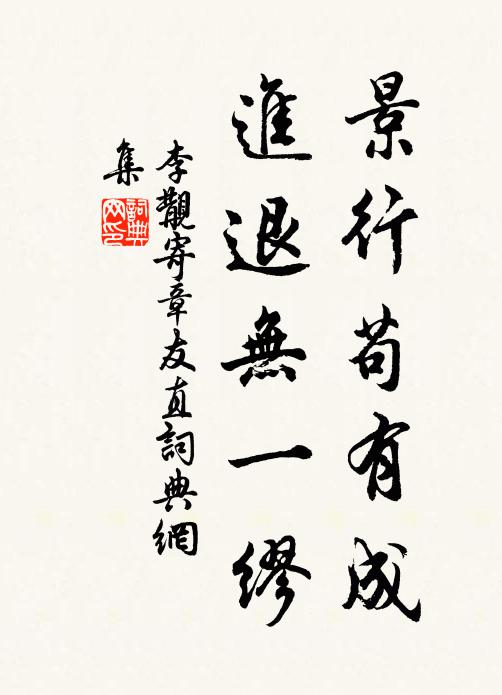 景行苟有成
進退無一繆
李覯寄章友直詞典網
集
詞典網印